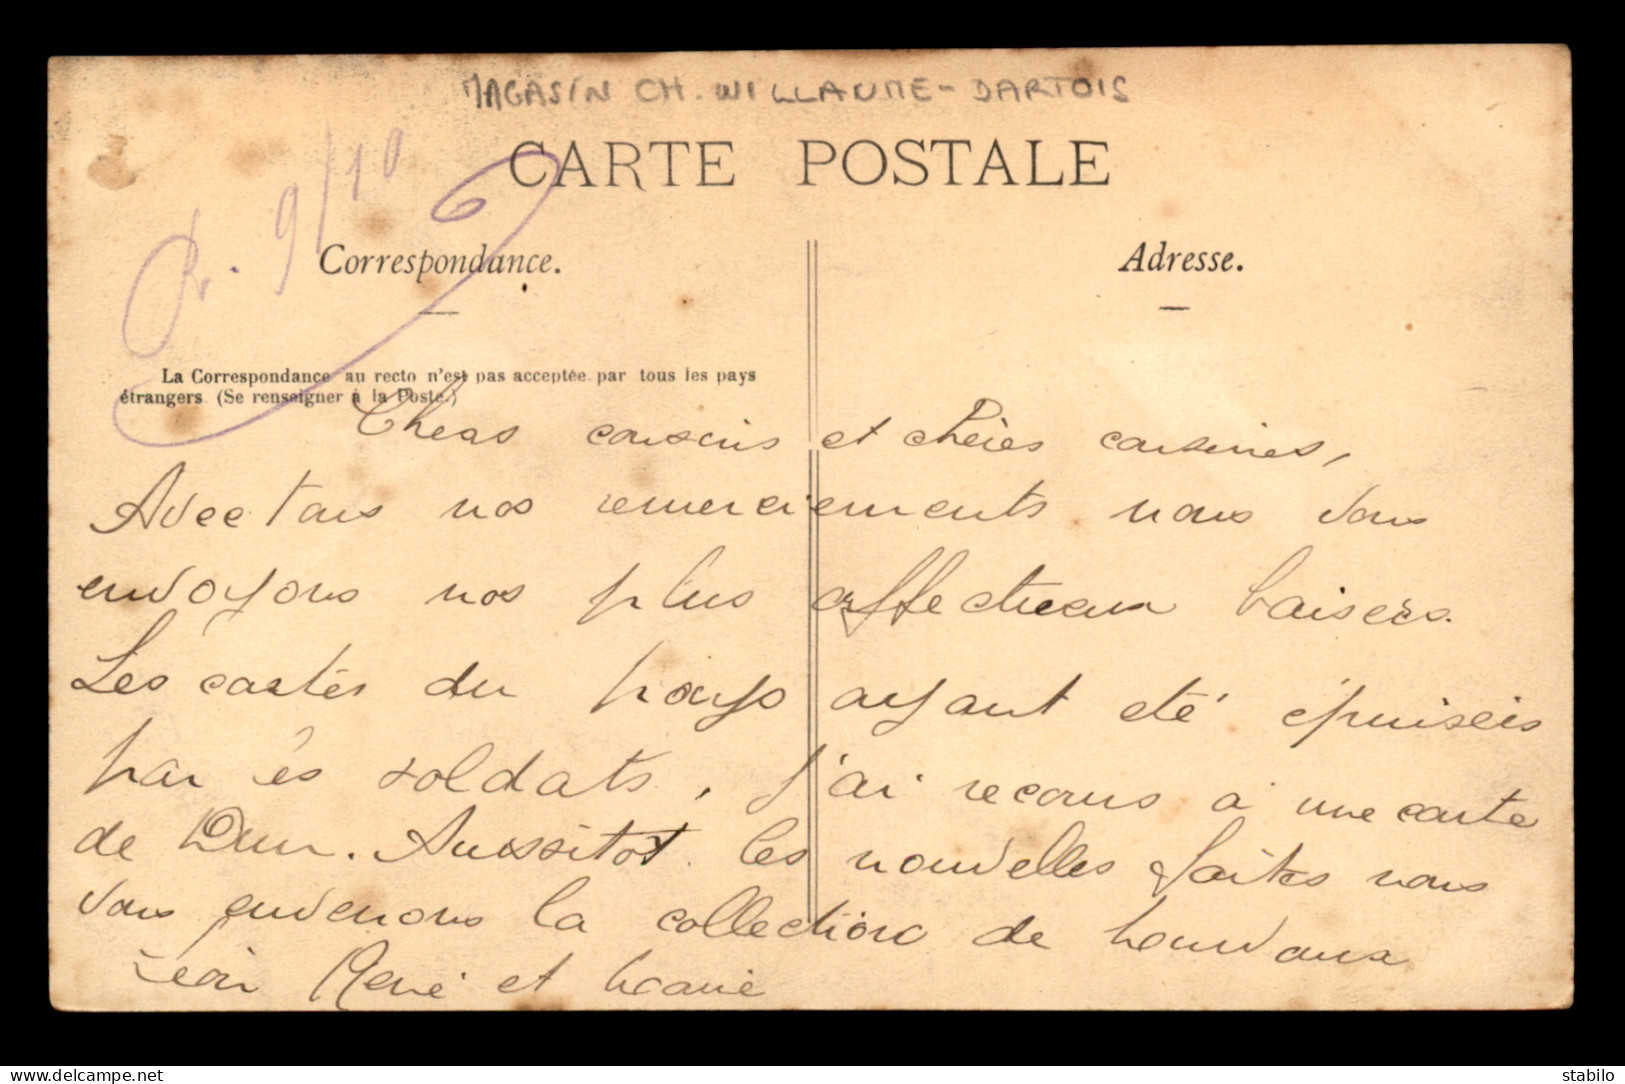 MAGASIN CH. WILLAUME-DARTOIS
CARTE POSTALE
R. 9/10
Correspondance.
Adresse.
La Correspondance au recto n'est pas acceptée par tous les pays
étrangers (Se renseigner à la Poste.)
Chers cousins et chères cousines,
Avec tous nos remerciements nous vous
envoyons nos plus affectueux baisers.
Les cartes du pays ayant été épuisées
par les soldats, j'ai recours à une carte
de Dun. Aussitôt les nouvelles faites nous
vous enverrons la collection de
Léon René et
www.delcampe.net
stabilo